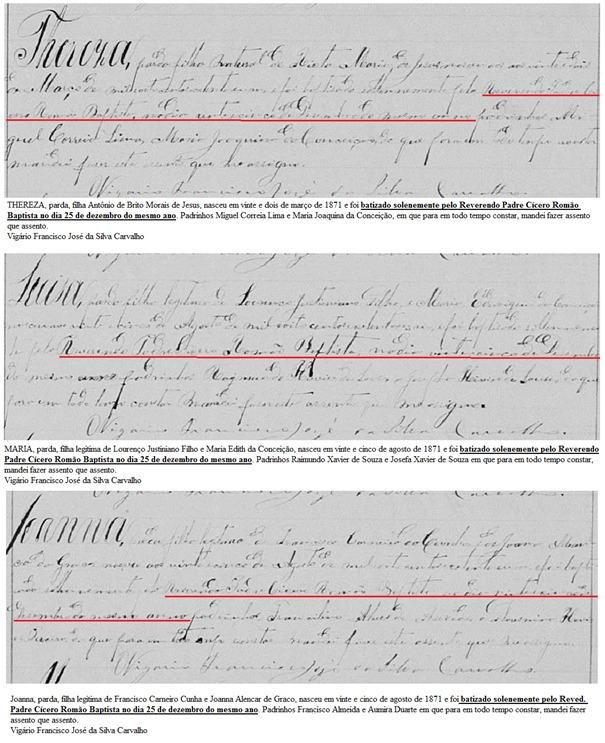 Thereza, parda filha natural de Maria
de Março de e foi baptisada solemnemente pelo Reverendo
Romão Baptista, no dia vinte e cinco de Dezembro do mesmo anno padrinhos
Correia Lima, Maria Joaquina da Conceição, do que para em todo tempo constar
mandei fazer este assento que me assigno.
Vigario Francisco José da Silva Carvalho.
THEREZA, parda, filha Antônio de Brito Morais de Jesus, nasceu em vinte e dois de março de 1871 e foi batizado solenemente pelo Reverendo Padre Cícero Romão
Baptista no dia 25 de dezembro do mesmo ano. Padrinhos Miguel Correia Lima e Maria Joaquina da Conceição, em que para em todo tempo constar, mandei fazer assento
que assento.
Vigário Francisco José da Silva Carvalho
parda filha legitima de Lourenço Justiniano Filho, e Maria
de Agosto de mil oito centos e foi baptisada solemnemen
te pelo Reverendo Padre Cicero Romão Baptista, no dia vinte e cinco de
do mesmo anno padrinhos Raymundo Xavier de Souza e Josefa Xavier de Souza, do que
para em todo tempo constar mandei fazer este assento que me assigno.
Vigario Francisco José da Silva Carvalho.
MARIA, parda, filha legitima de Lourenço Justiniano Filho e Maria Edith da Conceição, nasceu em vinte e cinco de agosto de 1871 e foi batizado solenemente pelo Reverendo
Padre Cícero Romão Baptista no dia 25 de dezembro do mesmo ano. Padrinhos Raimundo Xavier de Souza e Josefa Xavier de Souza em que para em todo tempo constar,
mandei fazer assento que assento.
Vigário Francisco José da Silva Carvalho
Joanna, filha legitima de Francisco Carneiro da Cunha, Joanna
de Agosto de
Reverendo Padre Cicero Romão Baptista
Dezembro do mesmo anno padrinhos
do que para em todo tempo constar mandei fazer este assento que me assigno
Vigario Francisco José da Silva Carvalho.
Joanna, parda, filha legitima de Francisco Carneiro Cunha e Joanna Alencar de Graco, nasceu em vinte e cinco de agosto de 1871 e foi batizado solenemente pelo Reved.
Padre Cícero Romão Baptista no dia 25 de dezembro do mesmo ano. Padrinhos Francisco Almeida e Aumira Duarte em que para em todo tempo constar, mandei fazer
assento que assento.
Vigário Francisco José da Silva Carvalho